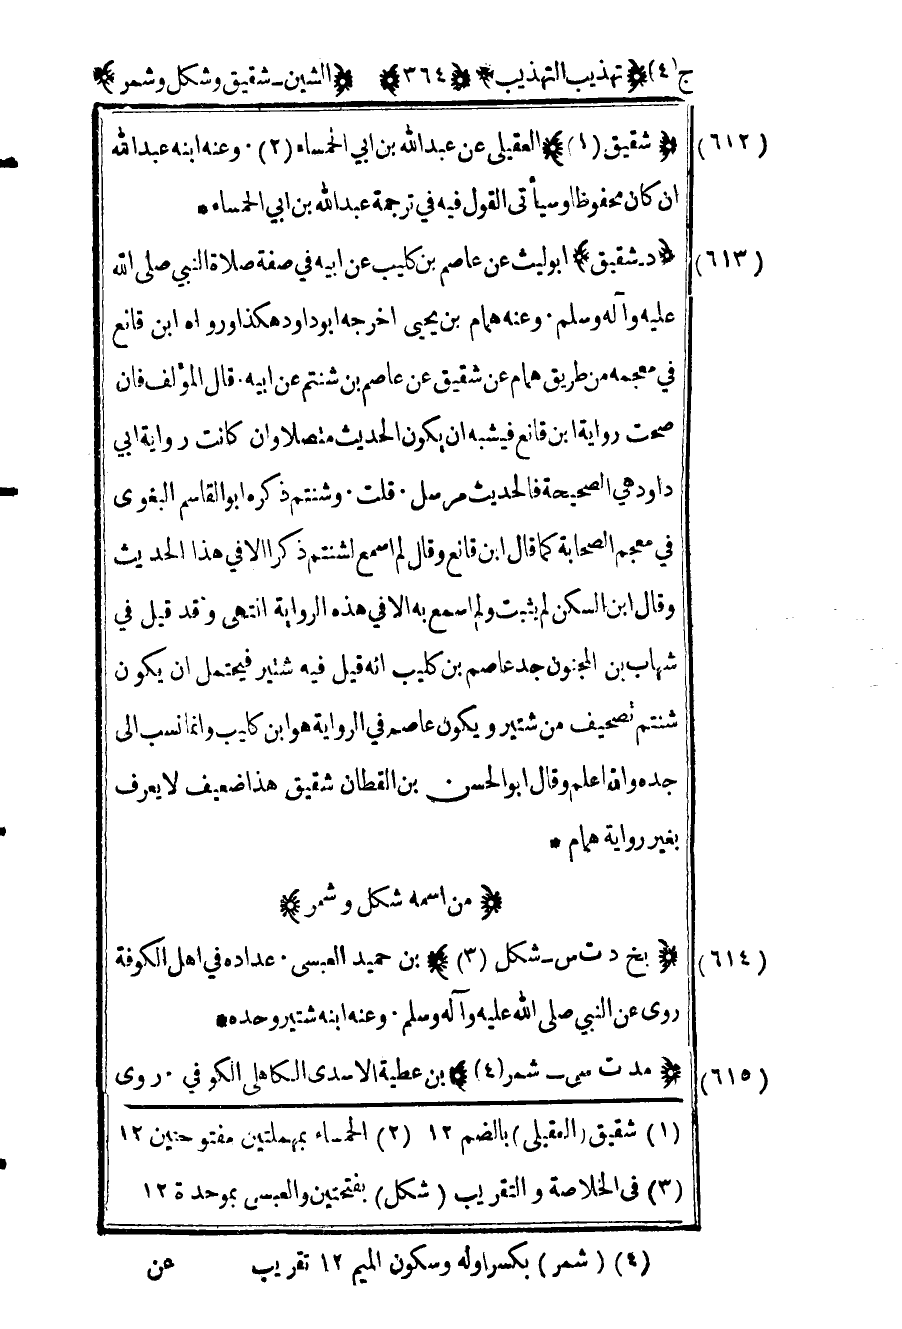 ج (٤) ﴿ تهذيب التهذيب ﴾ ﴿ ٣٦٤ ﴾ ﴿ الشين - شقيق وشكل وشمر ﴾
(٦١٢) ﴿ شقيق (١) ﴾ العقيلى عن عبدالله بن ابي الحمساء (٢) ٠ وعنه ابنه عبدالله
ان كان محفوظا وسيأتى القول فيه في ترجمة عبدالله بن ابي الحمساء *
(٦١٣) ﴿ د ـ شقيق ﴾ ابو ليث عن عاصم بن كليب عن ابيه في صفة صلاة النبي صلى الله
عليه وآله وسلم ٠ وعنه همام بن يحيى اخرجه ابو داود هكذا ورواه ابن قانع
في معجمه من طريق همام عن شقيق عن عاصم بن شنتم عن ابيه ٠ قال المؤلف فان
صحت رواية ابن قانع فيشبه ان يكون الحديث متصلا وان كانت رواية ابي
داود هي الصحيحة فالحديث مرسل ٠ قلت ٠ وشنتم ذكره ابو القاسم البغوى
في معجم الصحابة كما قال ابن قانع وقال لم اسمع لشنتم ذكرا الا في هذا الحديث
وقال ابن السكن لم يثبت ولم اسمع به الا في هذه الرواية انتهى وقد قيل في
شهاب بن المجنون جد عاصم بن كليب انه قيل فيه شتير فيحتمل ان يكون
شنتم تصحيف من شتير ويكون عاصم في الرواية هو ابن كليب وانما نسب الى
جده والله اعلم وقال ابو الحسن بن القطان شقيق هذا ضعيف لا يعرف
بغير رواية همام *
﴿ من اسمه شكل و شمر ﴾
(٦١٤) ﴿ بخ د ت س ـ شكل (٣) ﴾ بن حميد العبسى ٠ عداده في اهل الكوفة
روى عن النبي صلى الله عليه وآله وسلم ٠ وعنه ابنه شتير وحده *
(٦١٥) ﴿ مد ت سى ـ شمر (٤) ﴾ بن عطية الاسدى الكاهلى الكوفي ٠ روى
(١) شقيق (العقيلى) بالضم ١٢ (٢) الحمساء بمهملتين مفتوحتين ١٢
(٣) فى الخلاصة و التقريب (شكل) بفتحتين والعبسى بموحدة ١٢
(٤) (شمر) بكسر اوله وسكون الميم ١٢ تقريب
عن